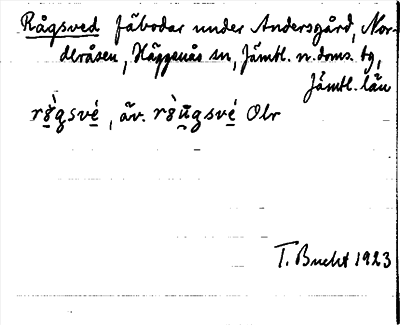 Rågsved Fäbodar under Andersgård, Nor-
dlråsen, Häggenås sn, Jämtl. n. doms. tg,
Jämtl. län
, äv. Olr
T. Bucht 1923